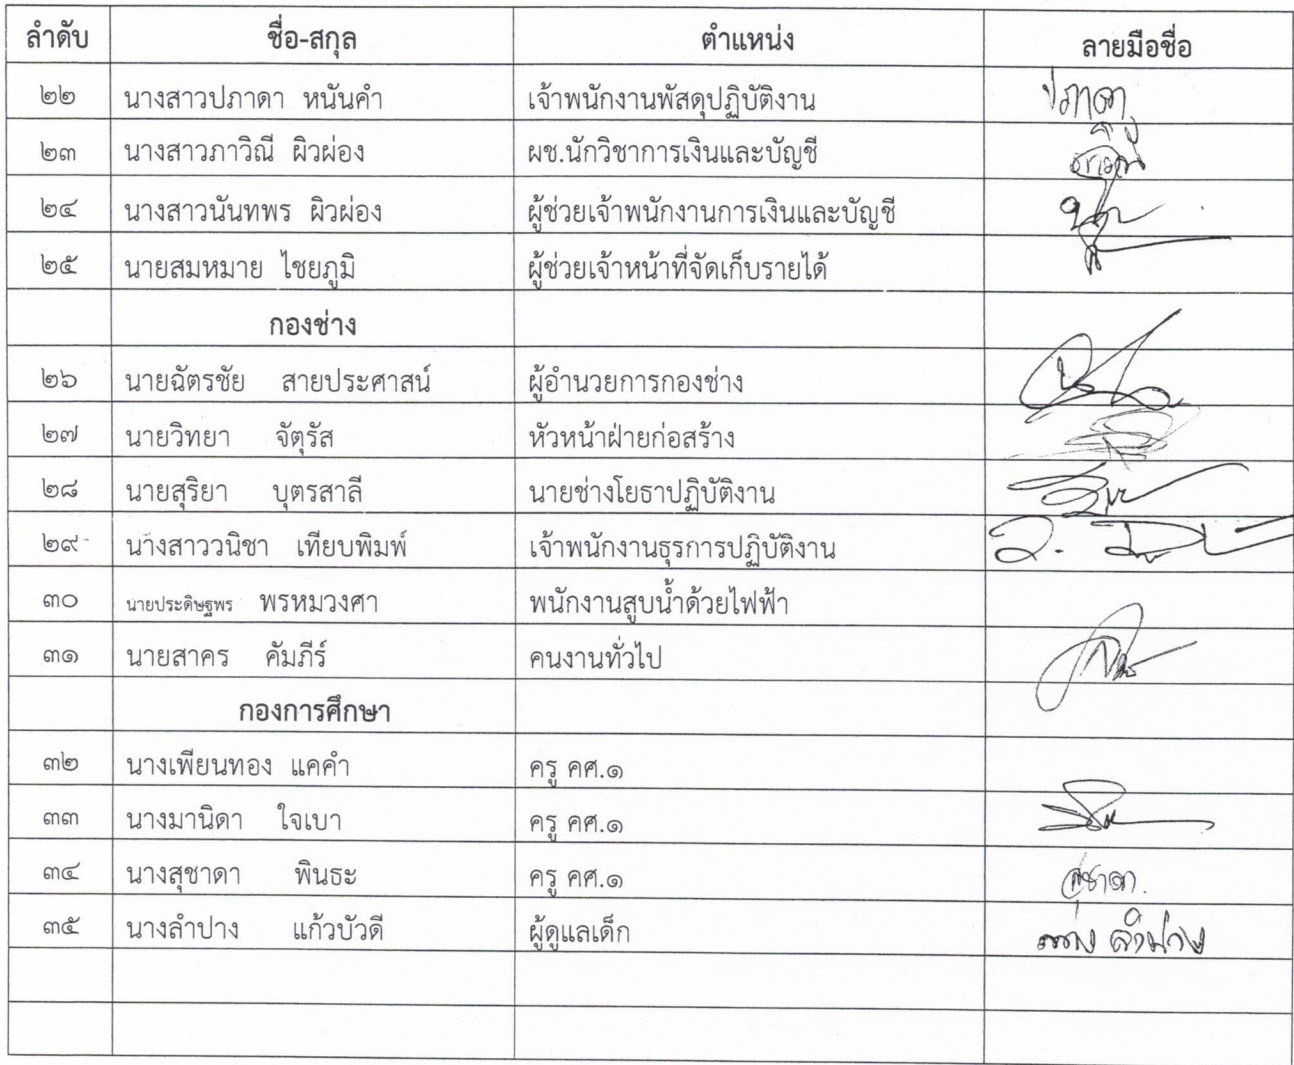 ลำดับ ชื่อ-สกุล ตำแหน่ง ลายมือชื่อ
๒๒ นางสาวปภาดา หนันคำ เจ้าพนักงานพัสดุปฏิบัติงาน ปภาดา
๒๓ นางสาวภาวิณี ผิวผ่อง ผช.นักวิชาการเงินและบัญชี
๒๔ นางสาวนันทพร ผิวผ่อง ผู้ช่วยเจ้าพนักงานการเงินและบัญชี
๒๕ นายสมหมาย ไชยภูมิ ผู้ช่วยเจ้าหน้าที่จัดเก็บรายได้
กองช่าง
๒๖ นายฉัตรชัย สายประศาสน์ ผู้อำนวยการกองช่าง
๒๗ นายวิทยา จัตุรัส หัวหน้าฝ่ายก่อสร้าง
๒๘ นายสุริยา บุตรสาลี นายช่างโยธาปฏิบัติงาน
๒๙ นางสาววนิชา เทียบพิมพ์ เจ้าพนักงานธุรการปฏิบัติงาน
๓๐ นายประดิษฐพร พรหมวงศา พนักงานสูบน้ำด้วยไฟฟ้า
๓๑ นายสาคร คัมภีร์ คนงานทั่วไป
กองการศึกษา
๓๒ นางเพียนทอง แคคำ ครู คศ.๑
๓๓ นางมานิดา ใจเบา ครู คศ.๑
๓๔ นางสุชาดา พินธะ ครู คศ.๑ สุชาดา
๓๕ นางลำปาง แก้วบัวดี ผู้ดูแลเด็ก นาง ลำปาง